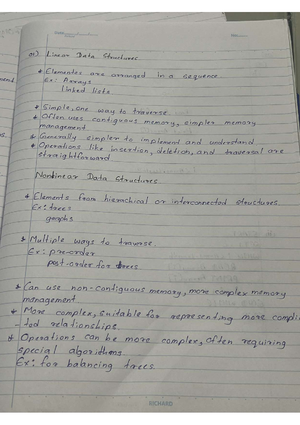 21) Linear Data Structures
* Elementes are arranged in a sequence
Ex: Arrays
linked lists
* Simple, one way to traverse
* Often uses contiguous memory, simpler memory
management
* Generally simpler to implement and understand
* Operations like insertion, deletion, and traversal are
straightforward
Nonlinear Data Structures
* Elements from hierachical or interconnected structures
Ex: trees
graphs
* Multiple ways to traverse
Ex: pre-order
post-order for trees
* Can use non-contiguous memory, more complex memory
management
* More complex, suitable for representing more compli
-ted relationships
* Operations can be more complex, often requiring
special algorithms.
Ex: for balancing trees.
RICHARD